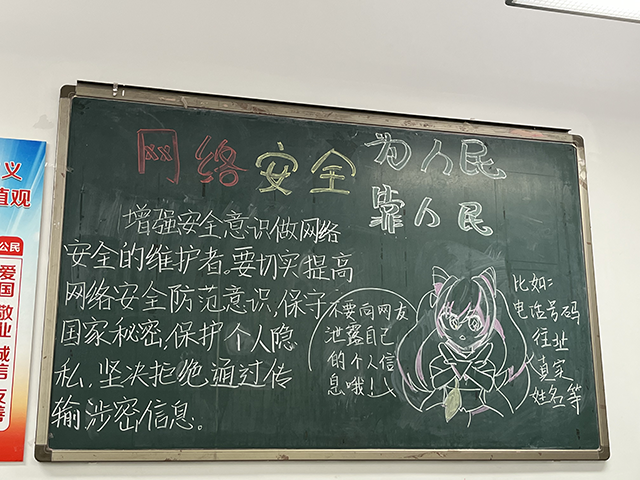 网络安全 为人民
靠人民
增强安全意识做网络
安全的维护者。要切实提高
网络安全防范意识,保守
国家秘密,保护个人隐
私,坚决拒绝通过传
输涉密信息。
不要向网友
泄露自己
的个人信
息哦!
比如:
电话号码
住址
真实
姓名等
义
值观
公民
爱国
敬业
诚信
友善